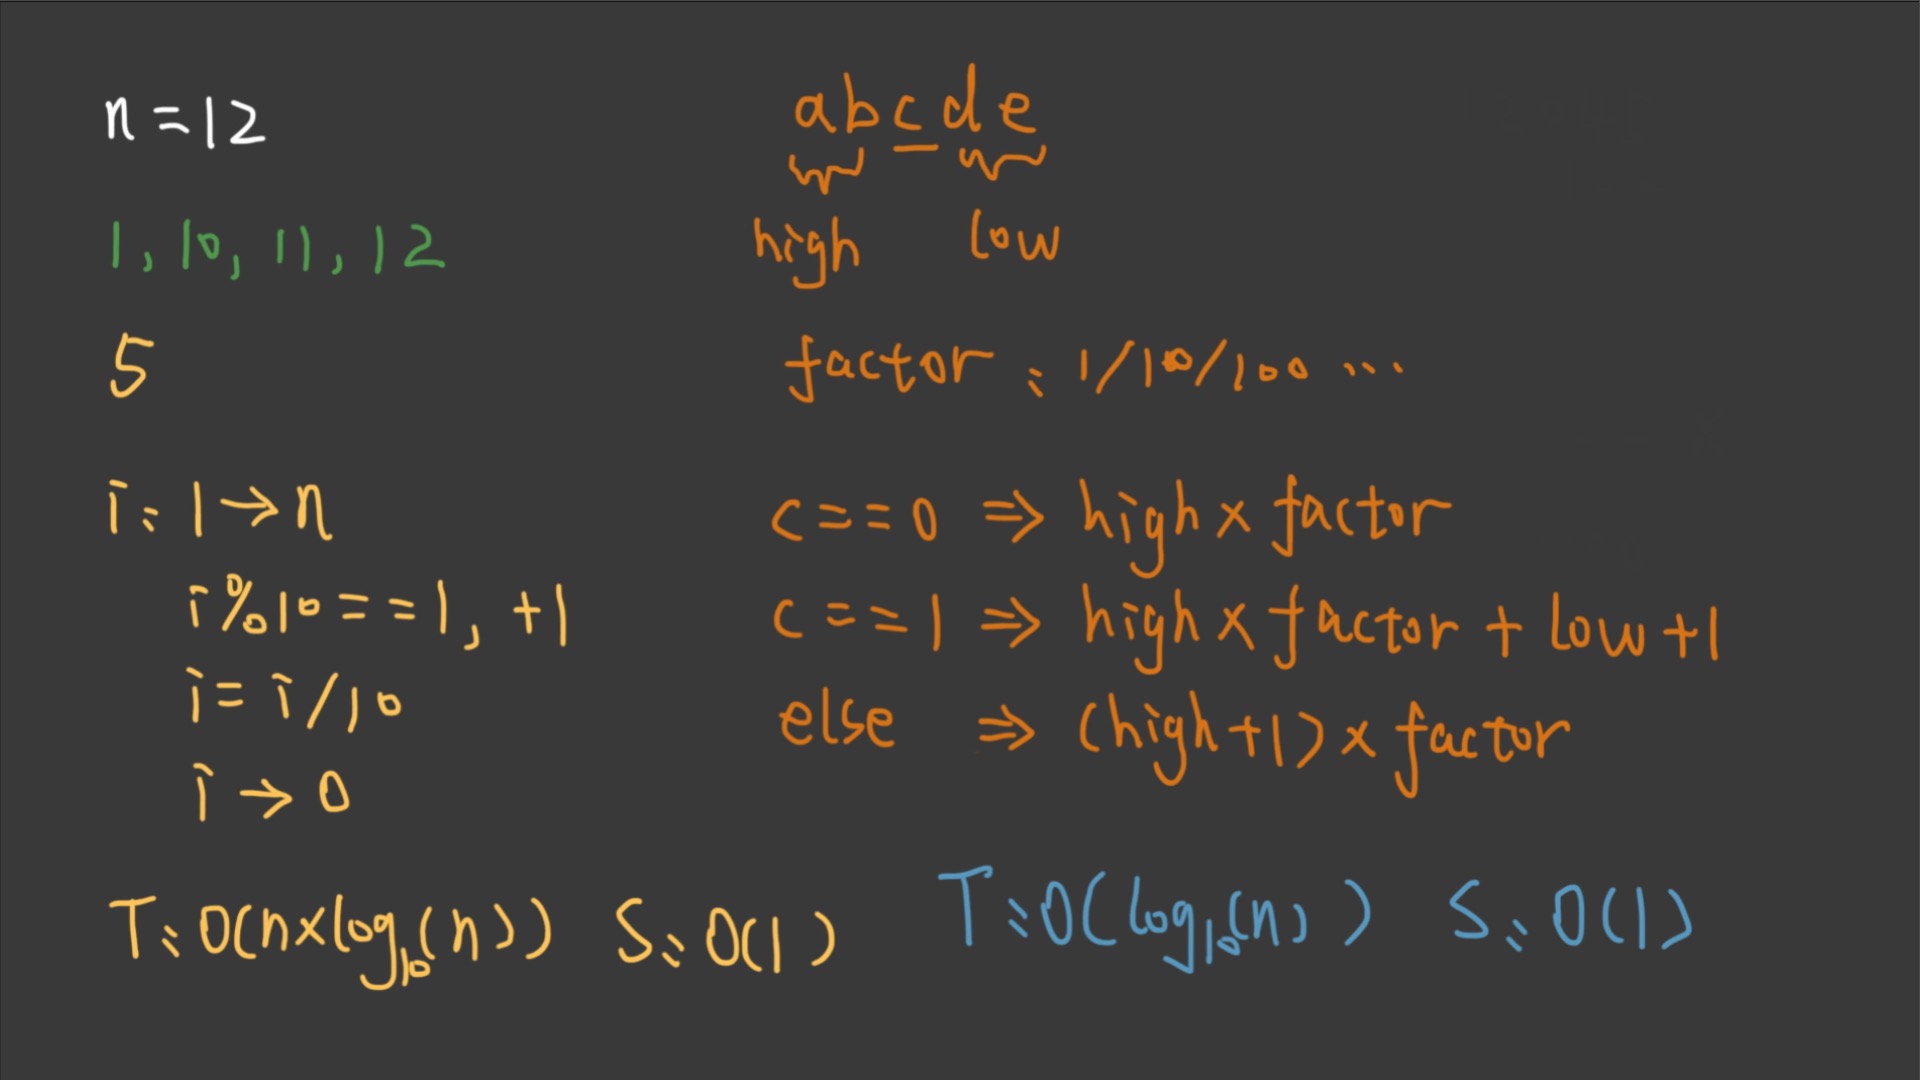 n = 12
1, 10, 11, 12
5
i: 1 → n
i%10 == 1, +1
i = i/10
i → 0
T: O(n×log₁₀(n)) S: O(1)
abcde
high low
factor: 1/10/100 ...
c == 0 ⇒ high × factor
c == 1 ⇒ high × factor + low + 1
else ⇒ (high+1) × factor
T: O(log₁₀(n)) S: O(1)